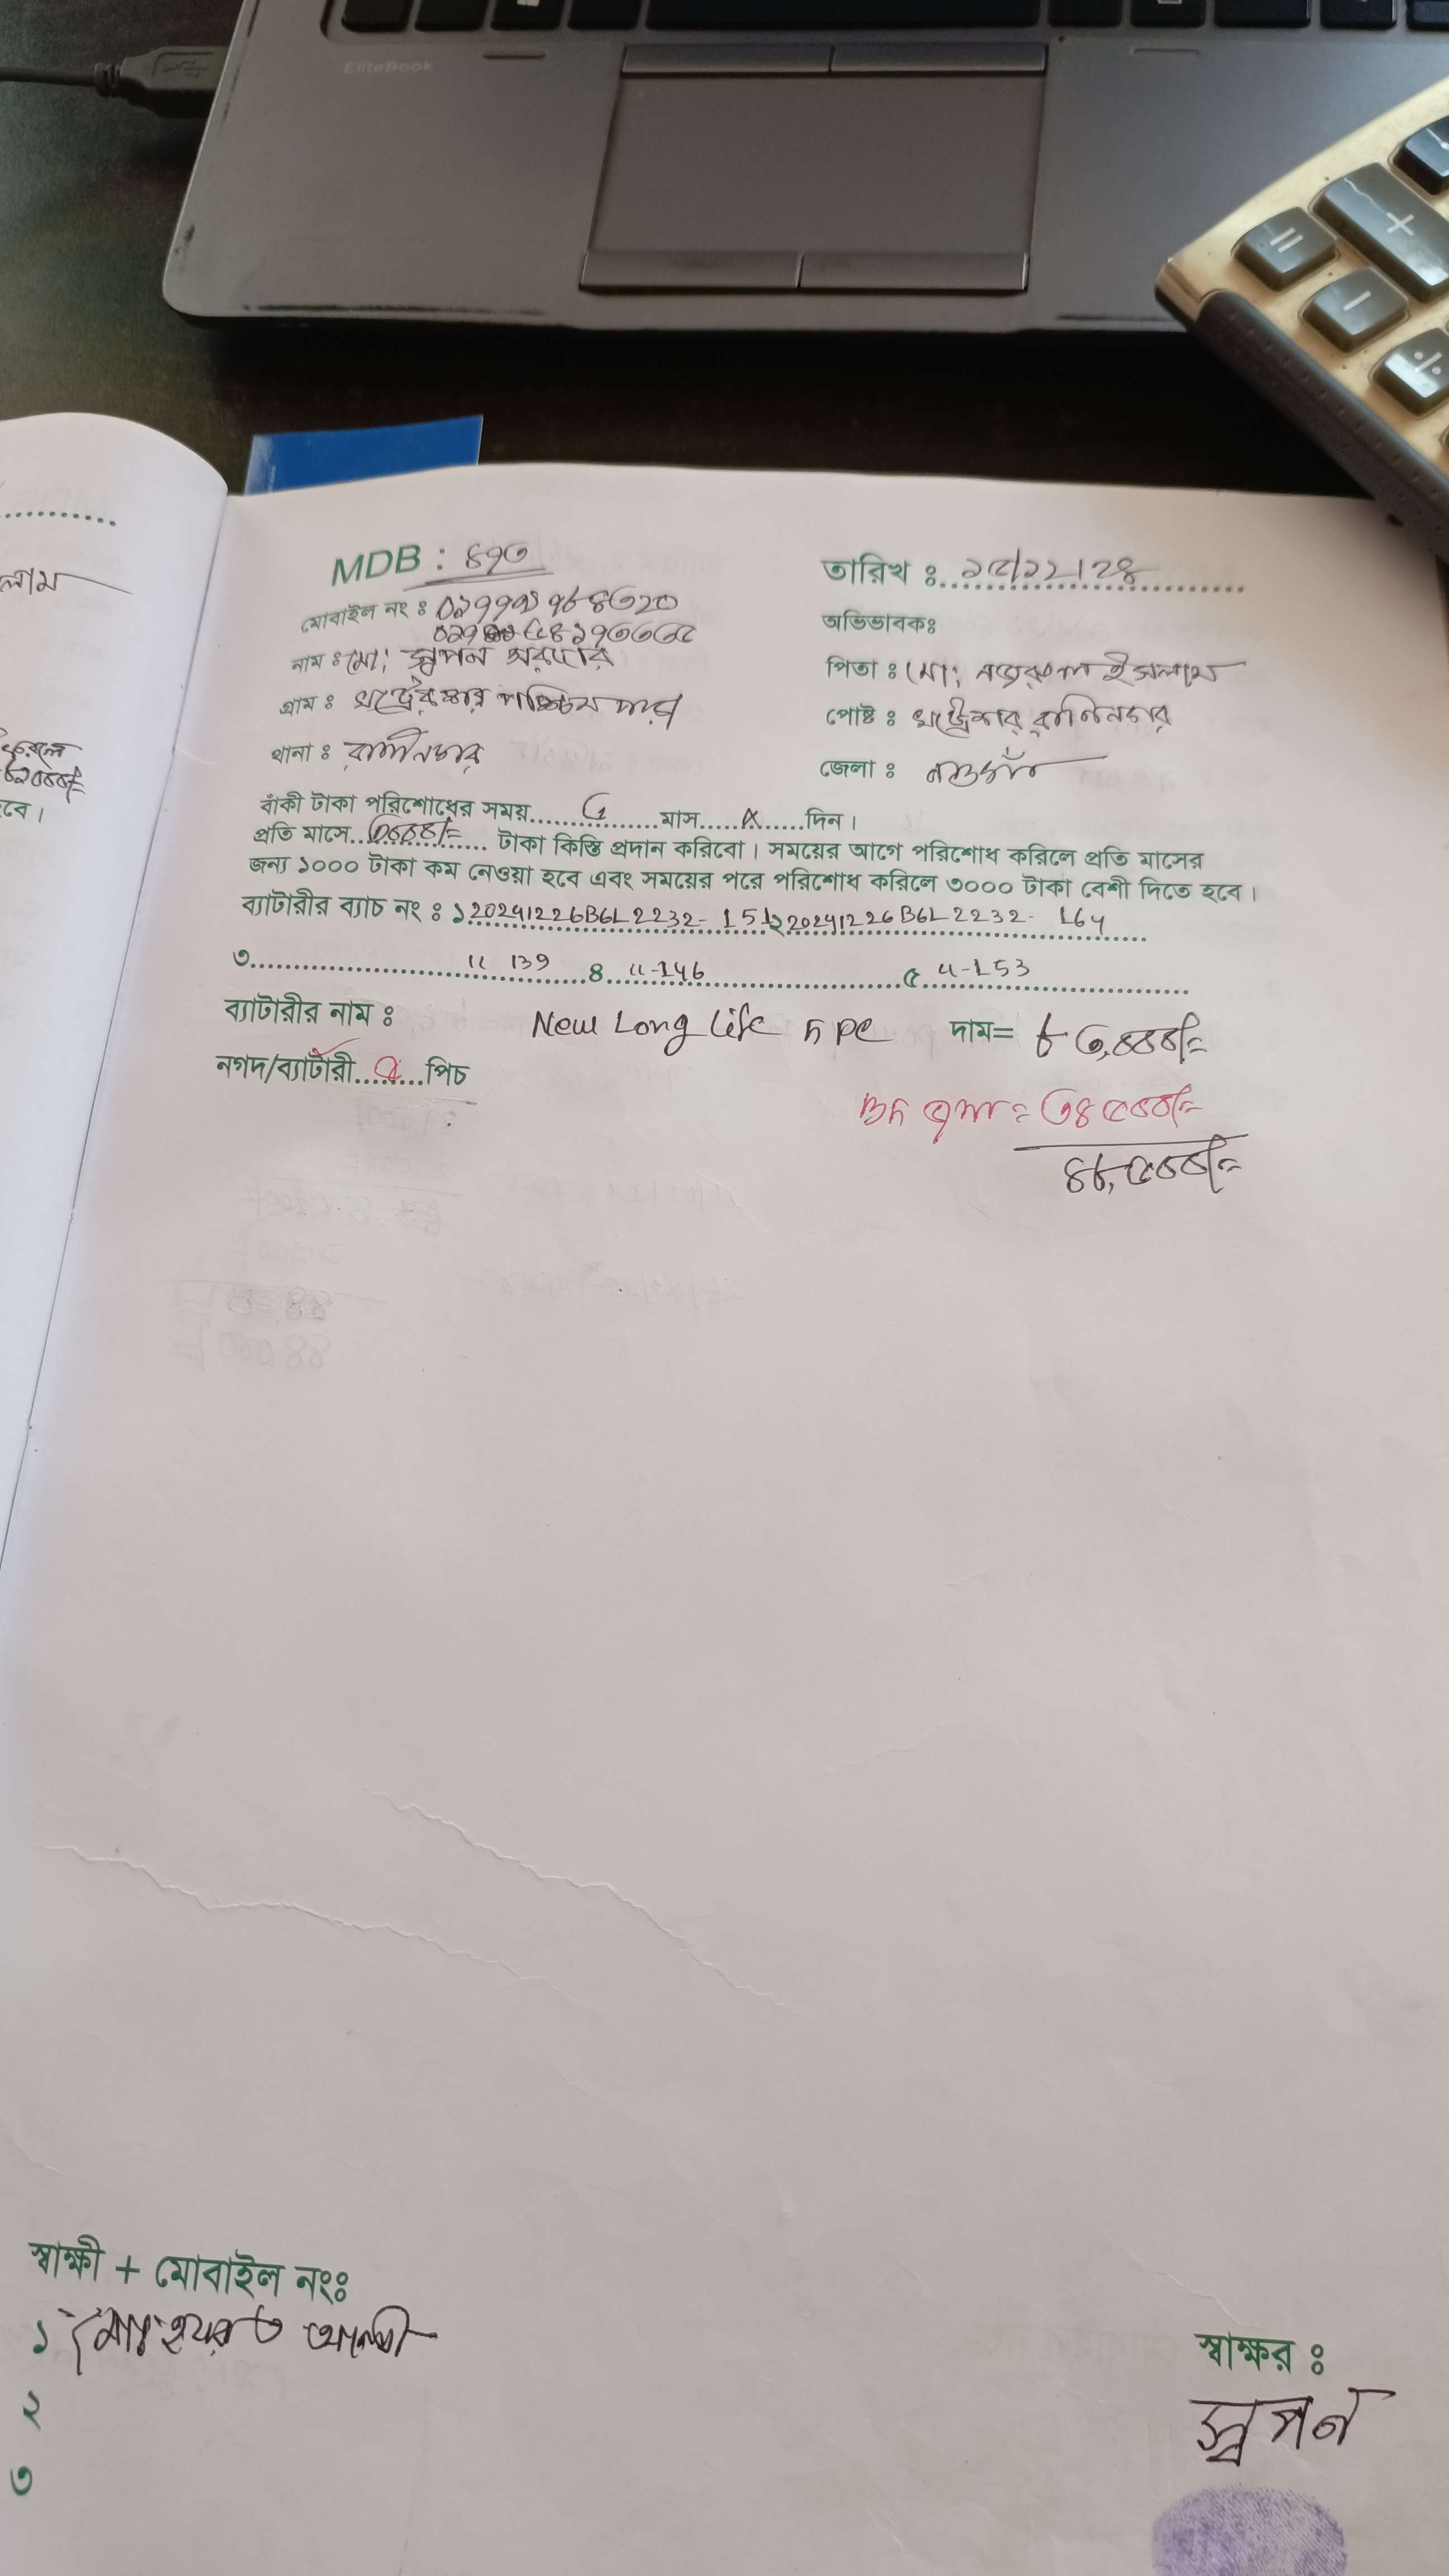 EliteBook
লাম
MDB : ৪৭৩
তারিখ ঃ ১৫/১২/২৪
মোবাইল নং ঃ
অভিভাবকঃ
নাম ঃ মো: স্বপন সরদার
পিতা ঃ মো: নজরুল ইসলাম
গ্রাম ঃ পশ্চিম পাড়া
পোষ্ট ঃ
থানা ঃ রানীনগর
জেলা ঃ নওগাঁ
বাঁকী টাকা পরিশোধের সময়.............মাস.............দিন।
প্রতি মাসে.. ৩০০০/= .. টাকা কিস্তি প্রদান করিবো। সময়ের আগে পরিশোধ করিলে প্রতি মাসের
জন্য ১০০০ টাকা কম নেওয়া হবে এবং সময়ের পরে পরিশোধ করিলে ৩০০০ টাকা বেশী দিতে হবে।
ব্যাটারীর ব্যাচ নং ঃ ১ 20241226B6L2232- 151 ২ 20241226B6L2232- 164
৩ " 139 ৪ "-146 ৫ "-153
ব্যাটারীর নাম ঃ New Long Life 5 pc দাম= ৮৩,০০০/=
নগদ/ব্যাটারী ৫ পিচ
৩৪৫০০/=
৪৮,৫০০/=
স্বাক্ষী + মোবাইল নংঃ
১ মোঃ হযরত আলী
স্বাক্ষর ঃ
২
স্বপন
৩